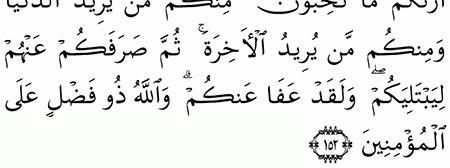 أَرَىٰكُم مَّا تُحِبُّونَ ۚ مِنكُم مَّن يُرِيدُ ٱلدُّنْيَا
وَمِنكُم مَّن يُرِيدُ ٱلْـَٔاخِرَةَ ۚ ثُمَّ صَرَفَكُمْ عَنْهُمْ
لِيَبْتَلِيَكُمْ ۖ وَلَقَدْ عَفَا عَنكُمْ ۗ وَٱللَّهُ ذُو فَضْلٍ عَلَى
ٱلْمُؤْمِنِينَ ﴿١٥٢﴾